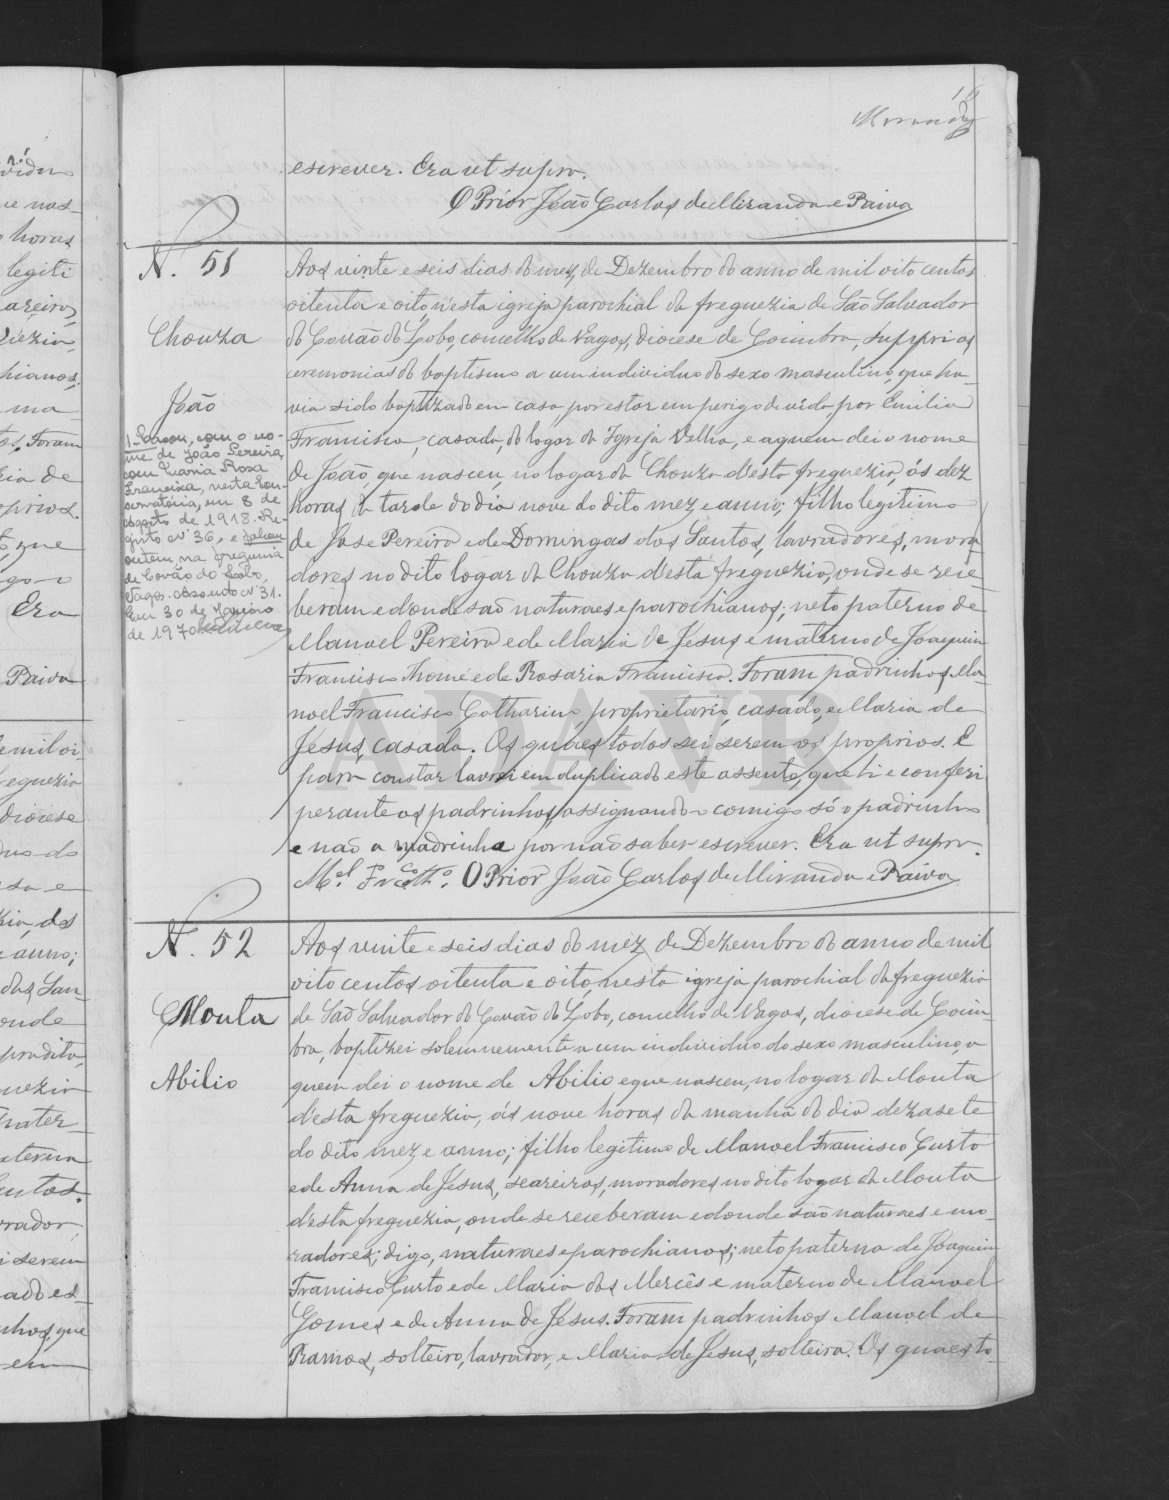 Miranda
escrever. Era ut supra.
O Prior João Carlos de Miranda e Paiva
N. 51
Chouza
João
1- Casou, com o no-
me de João Pereira,
com Maria Rosa
Francisca, nesta Con-
servatória, em 8 de
Agosto de 1918. Re-
gisto nº 36, e faleceu
ontem na freguesia
de Covão do Lobo,
Vagos. Assento nº 31.
Em 30 de Janeiro
de 1970
Aos vinte e seis dias do mez de Dezembro do anno de mil oito centos
oitenta e oito, n'esta igreja parochial da freguezia de São Salvador
do Covão do Lobo, concelho de Vagos, diocese de Coimbra, suppri as
ceremonias do baptismo a um individuo do sexo masculino, que ha-
via sido baptizado em casa, por estar em perigo de vida por Emilia
Francisca, casada, do logar da Igreja Velha, e a quem dei o nome
de João, que nasceu no logar da Chouza d'esta freguezia, ás dez
horas da tarde do dia nove do dito mez e anno; filho legitimo
de José Pereira e de Domingas dos Santos, lavradores, mora-
dores no dito logar da Chouza d'esta freguezia, onde se rece-
beram e donde são naturaes e parochianos; neto paterno de
Manoel Pereira e de Maria de Jesus e materno de Joaquim
Francisco Thomé e de Rosaria Francisca. Foram padrinhos Ma-
noel Francisco Catharino, proprietario, casado, e Maria de
Jesus, casada. Os quaes todos sei serem os proprios. E
para constar lavrei em duplicado este assento, que li e conferi
perante os padrinhos, assignando comigo só o padrinho
e não a madrinha por não saber escrever. Era ut supra.
M.el Fr.co Cth.o O Prior João Carlos de Miranda e Paiva
N. 52
Mouta
Abilio
Aos vinte e seis dias do mez de Dezembro do anno de mil
oito centos oitenta e oito, nesta igreja parochial da freguezia
de São Salvador do Covão do Lobo, concelho de Vagos, diocese de Coim-
bra, baptizei solemnemente a um individuo do sexo masculino, a
quem dei o nome de Abilio e que nasceu, no logar da Mouta
d'esta freguezia, ás nove horas da manhã do dia dezasete
do dito mez e anno; filho legitimo de Manoel Francisco Curto
e de Anna de Jesus, seareiros, moradores no dito logar da Mouta
d'esta freguezia, onde se receberam e donde são naturaes e mo-
radores; digo, naturaes e parochianos; neto paterno de Joaquim
Francisco Curto e de Maria das Mercês e materno de Manoel
Gomes e de Anna de Jesus. Foram padrinhos Manoel de
Ramos, solteiro, lavrador, e Maria de Jesus, solteira. Os quaes to-
ADAVR